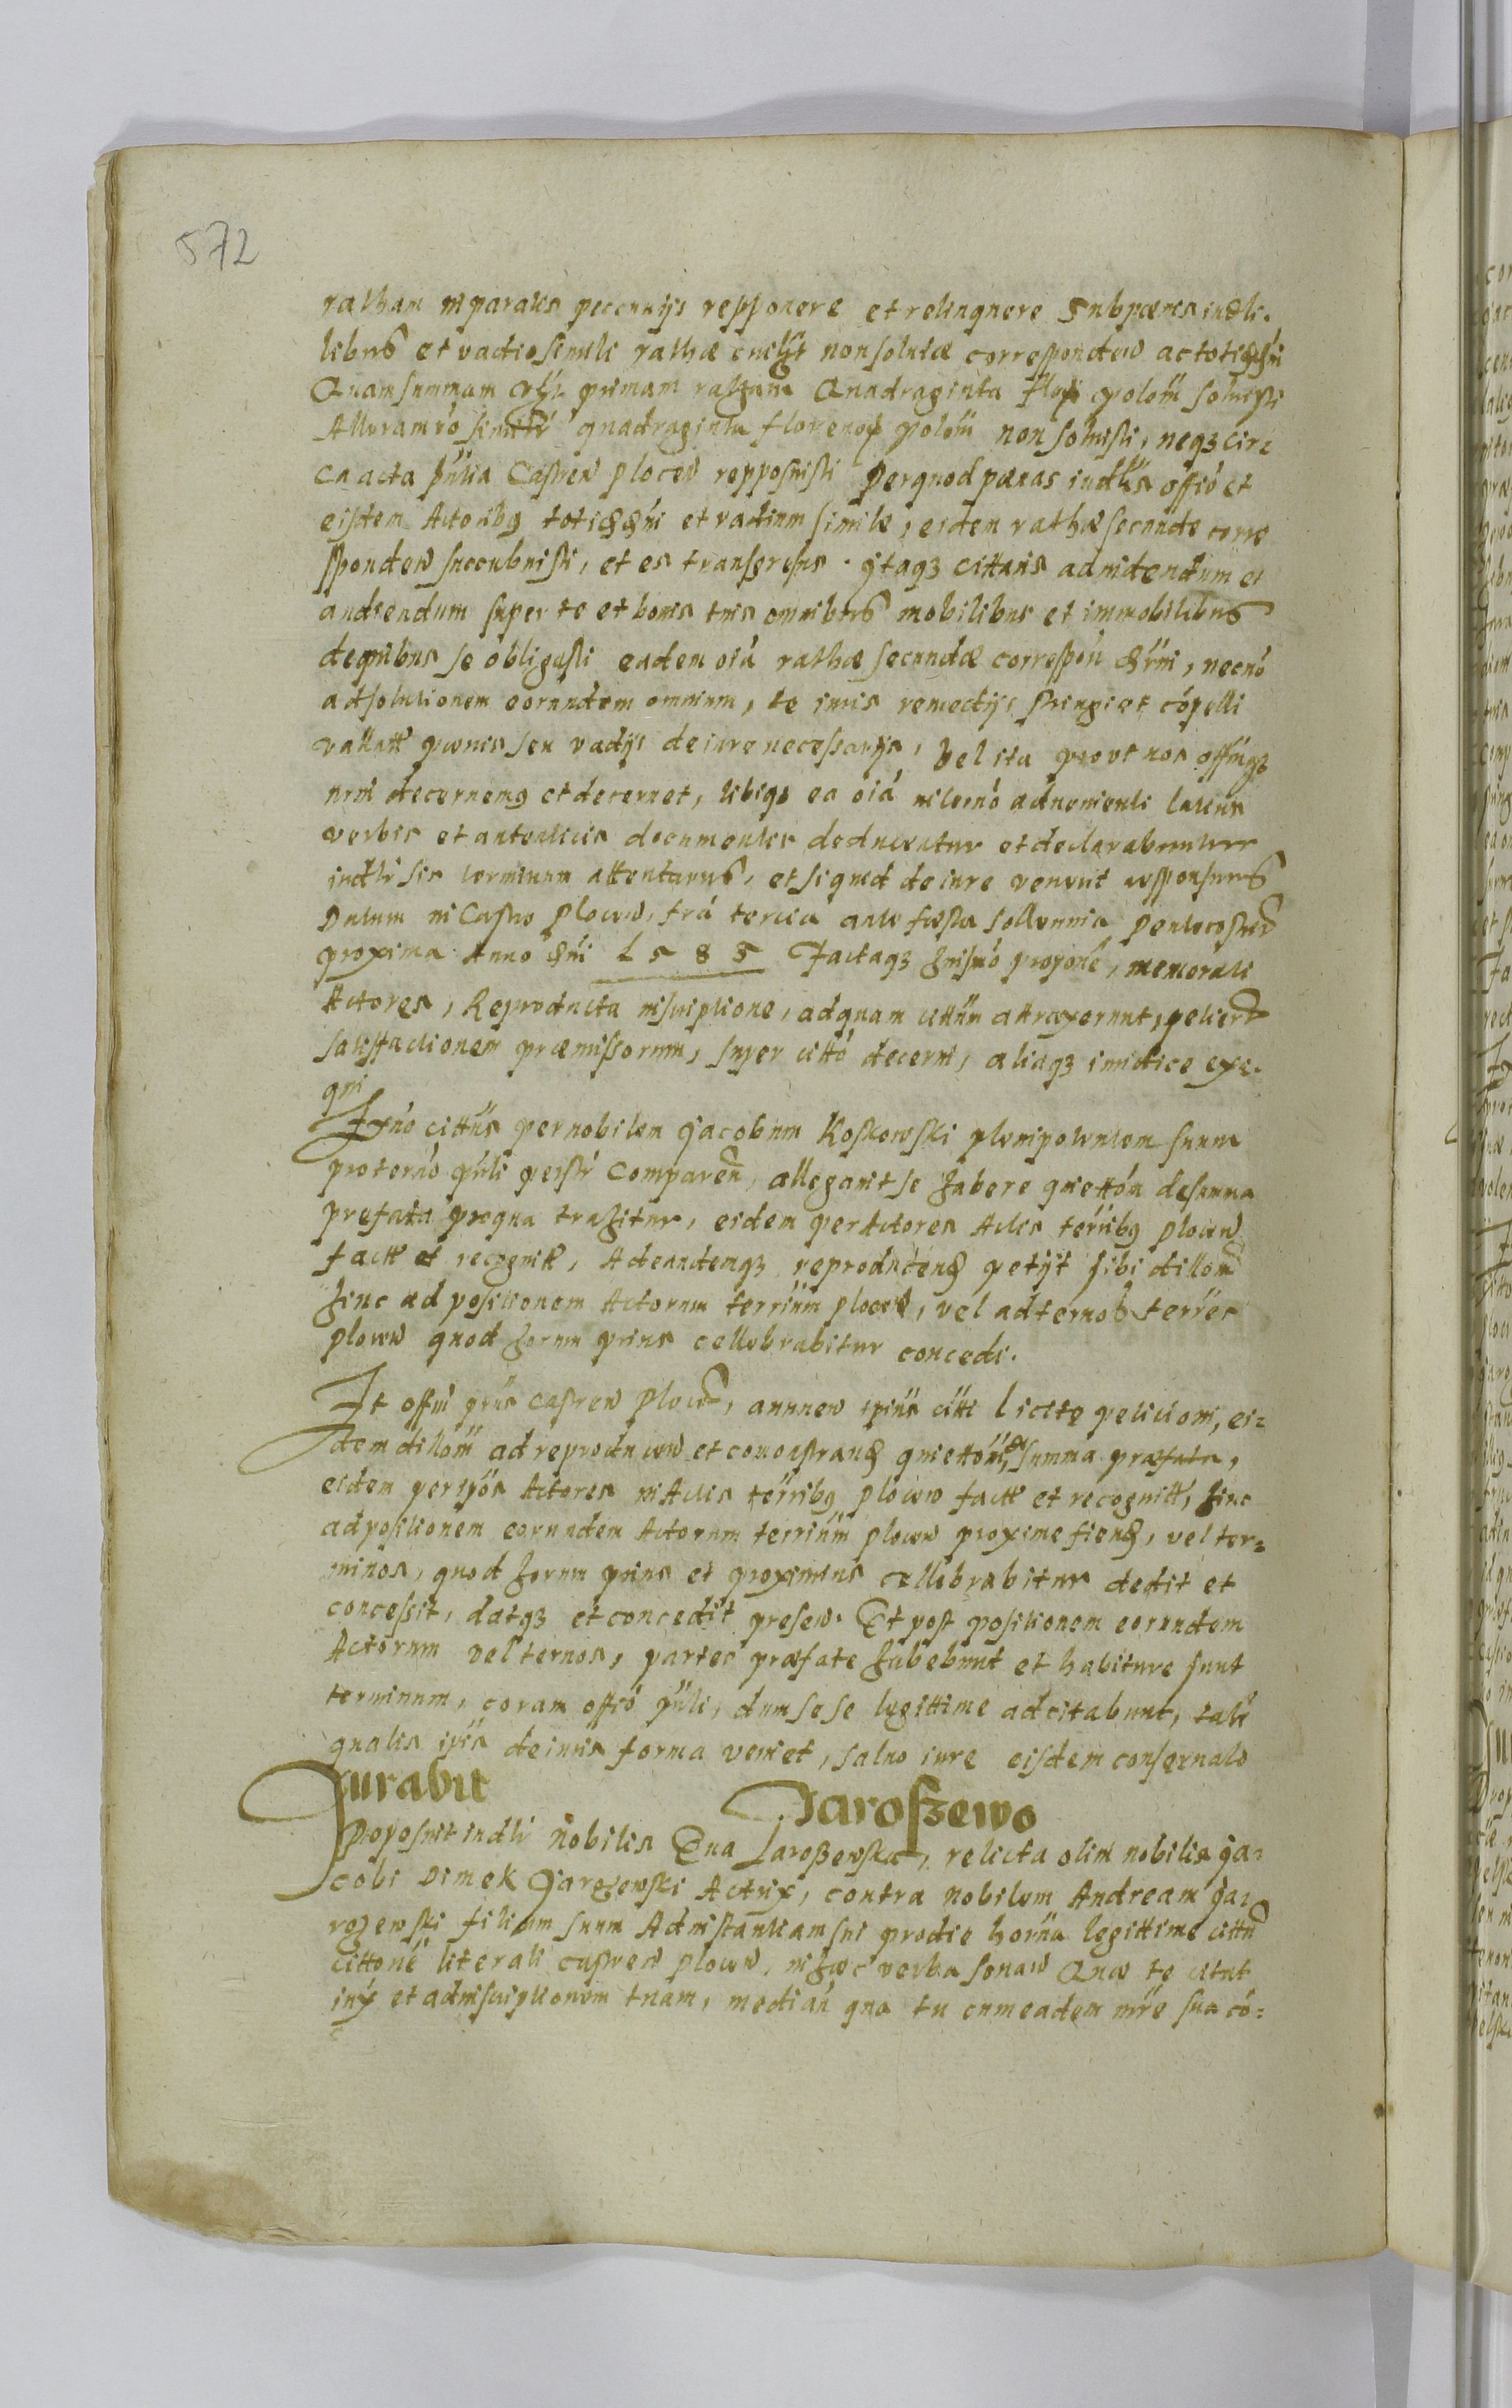 572
ratham in paratis peccunijs repponere et relinquere Sub pœnis iudi-
libus et vadio simili rathæ cuilt non solutæ corresponden ac toties
Quam summam primam ratham Quadraginta flor polom soluisti
Alteram vo simitr quadraginta florenoꝝ polom non soluisti, neqꝫ cir-
ca acta pntia Castren plocen repposuisti Per quod pœnas iudlis offio et
eisdem Actoribꝰ et vadium simile, eidem rathæ secunde corre
sponden succubuisti, et es transgressus. Itaqꝫ cittaris ad videndum et
audiendum super te et bonis tuis omnibus mobilibus et immobilibus
de quibus se obligasti eadem oia rathæ secundæ correspon, necno
ad solutionem eorundem omnium, te iuris remedijs stringi et copelli
vallatt pœnis seu vadijs de iure necessarijs, vel ita prout nos offmqꝫ
nrm decernemꝰ et decernet, ubiqꝫ ea oia in termo aduenienti latius
verbis et autenticis documentis deducentur et declarabuntur
iudlr sis terminum attentaurus, et si quid de iure venerit responsurus
Datum in Castro plocen, fra tercia ante festa sollennia Pentecosten
proxima Anno dni 1585 Factaqꝫ huismo propone, memorati
Actores, Reproducta inscriptione, ad quam cittum attraxerunt, petierunt
satisfactionem præmissorum, super citto decerni, aliaqꝫ iuridice exe-
qui
Ex quo cittus per nobilem Jacobum Koskowski plenipotentem suum
pro termo pnti comparen, allegauit se habere quiettom de summa
prefata pro qua trahitur, eidem per Actores Actis terribꝰ plocen
factt et recognitt, Ad eandemqꝫ reproducend petijt sibi dillom
hinc ad positionem Actorum terrium plocen, vel ad termos terres
plocen quod horum prius cellebrabitur concedi.
Et offm pns Castren Plocen, annuen ipius citti licite peticioni, ei-
dem dillom ad reproducen et comonstrand quiettom, de summa præfata,
eidem per ipos Actores in Actis terribꝰ plocen factt et recognitt, hinc
ad positionem eorundem Actorum terrium plocen proxime fiend, vel ter-
minos, quod horum prius et proximius cellebrabitur dedit et
concessit, datqꝫ et concedit presen. Et post positionem eorundem
Actorum vel termos, partes præfate habebunt et habiture sunt
terminum, coram offio pnti, dum se se legittime adcitabunt, talr
qualis ipis de iuris forma veniet, saluo iure eisdem conseruato
Jurabit Jaroszewo
Proposuit iudlr nobilis Dna Jaroszewska, relicta olim nobilis Ja-
cobi Dimek Jarozewski Actrix, contra nobilem Andream Ja-
rozewski filium suum Ad instantiam sui pro die horna legittime cittu
cittone literali castren plocen, in hæc verba sonan Quæ te citat
inx et ad inscriptionem tuam, median qua tu cum eadem mre sua co-